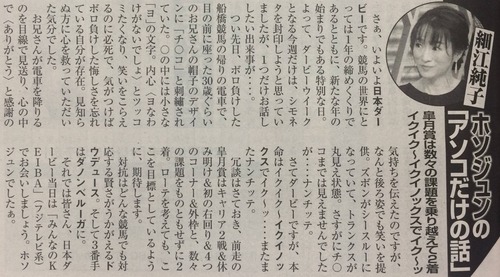 細江純子
ホソジュンの
「アソコだけの話」
皐月賞は数々の課題を乗り越えて2着
イクイク〜イクイノックスでイク〜ッ
さぁ、いよいよ日本ダー
ビーです。競馬の世界にと
っては1年の締めくくりで
あるとともに、新たな年の
始まりでもある特別な日。
となると今週だけは、シモネ
タを封印しようと思ってい
ましたが、1つだけお話し
したい出来事が‥‥。
つい先日、ボロ負けした
船橋競馬の帰りの電車で、
目の前に座った30歳ぐらい
のお兄さんの帽子のデザイ
ンに「チ〇コ」と刺繍され
ていた。〇の中には小さな
「ヨ」の文字。内心〈ヨなわ
けがないでしょ〉とツッコ
ミたくなり、笑いをこらえ
るのに必死で、気がつけば
ボロ負けした悔しさを忘れ
ている自分が存在。見知ら
ぬ方に心を救っていただい
た気分でした。
お兄さんが電車を降りる
のを目線で見送り、心の中
で〈ありがとう〉と感謝の
気持ちを伝えたのですが、
なんと後ろ姿でも笑いを提
供。ズボンがシースルーに
なっていて、トランクスが
丸見え状態。さすがにチ〇
コまでは見えませんでした
が‥‥ナンチッテ。
さてダービーですが、本
命はイクイク〜イクイノッ
クスでイク〜ッ‥‥またま
たナンチッテ。
冗談はさておき、前走の
皐月賞はキャリア2戦&休
み明け&初の右回り&4つ
のコーナー&外枠と、数々
の課題をものともせずに2
着。ローテを考えても、こ
こを目標としているように
感じ、期待します。
対抗はどんな競馬でも対
応する賢さがうかがえるド
ウデュース。そして3番手
はダノンベルーガに。
それでは皆さん、日本ダ
ービー当日は「みんなのK
EIBA」(フジテレビ系)
でお会いしましょう。ホソ
ジュンでしたぁ。